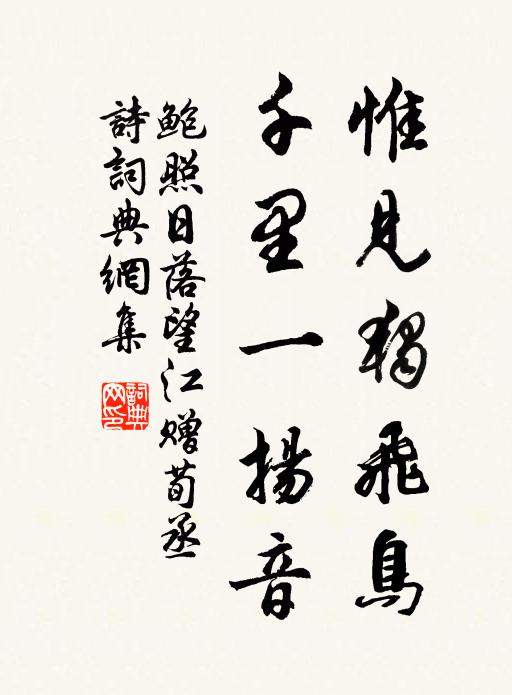 惟見獨飛鳥
千里一揚音
鮑照日落望江贈荀丞
詩詞典網集
詞典网印